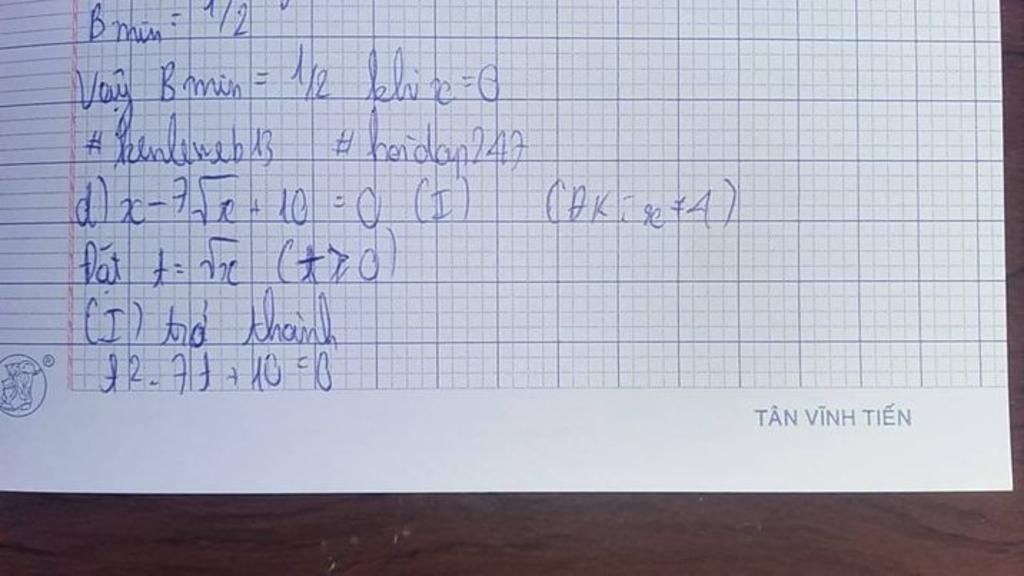 Bmin = 1/2
Vậy Bmin = 1/2 khi x = 0
# kenleweb13 # hoidap247
d) x - 7√x + 10 = 0 (I) (ĐK: x ≠ 4)
Đặt t = √x (t ≥ 0)
(I) trở thành
t2 - 7t + 10 = 0
TÂN VĨNH TIẾN